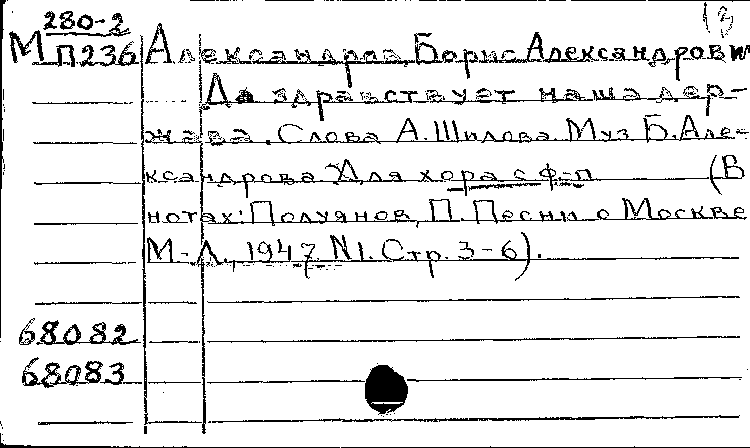 280-2 13
М П236 Александров, Борис Александрови
Да здравствует наша дер-
жава. Слова А. Шилова. Муз Б. Але-
ксандрова. Для хора с ф-п (В
нотах: Полуянов, П. Песни о Москве
М.-Л., 1947 N1. Стр. 3-6).
68082
68083